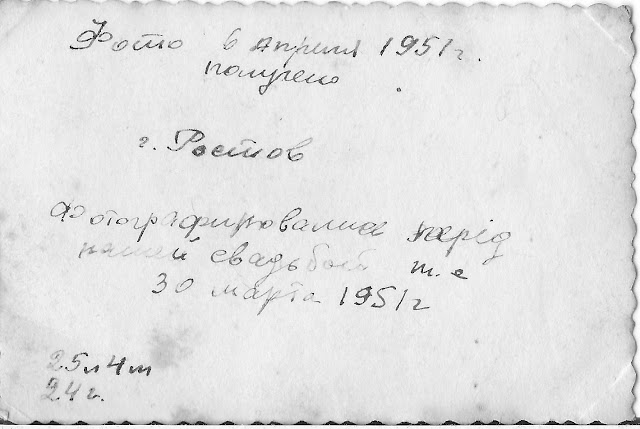 Фото 6 апреля 1951г.
получено
г. Ростов
Фотографировались перед
нашей свадьбой т.е
30 марта 1951г
25л 4м
24г.